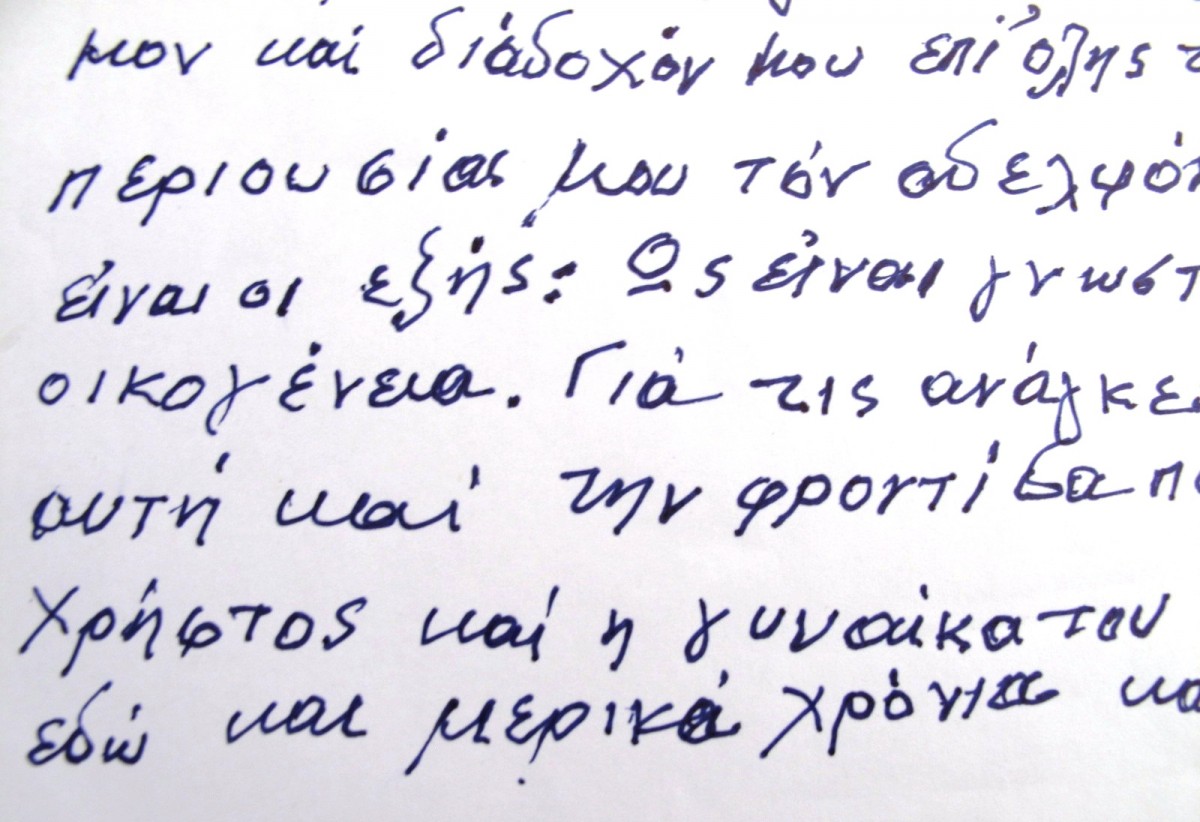 μον και διάδοχόν μου επί όλης τ
περιουσίας μου τόν αδελφόν
είναι οι εξής: Ως είναι γνωστ
οικογένεια. Γιά τις ανάγκες
αυτή καί την φροντίδα πο
Χρήστος καί η γυναίκα του
εδώ και μερικά χρόνια κα